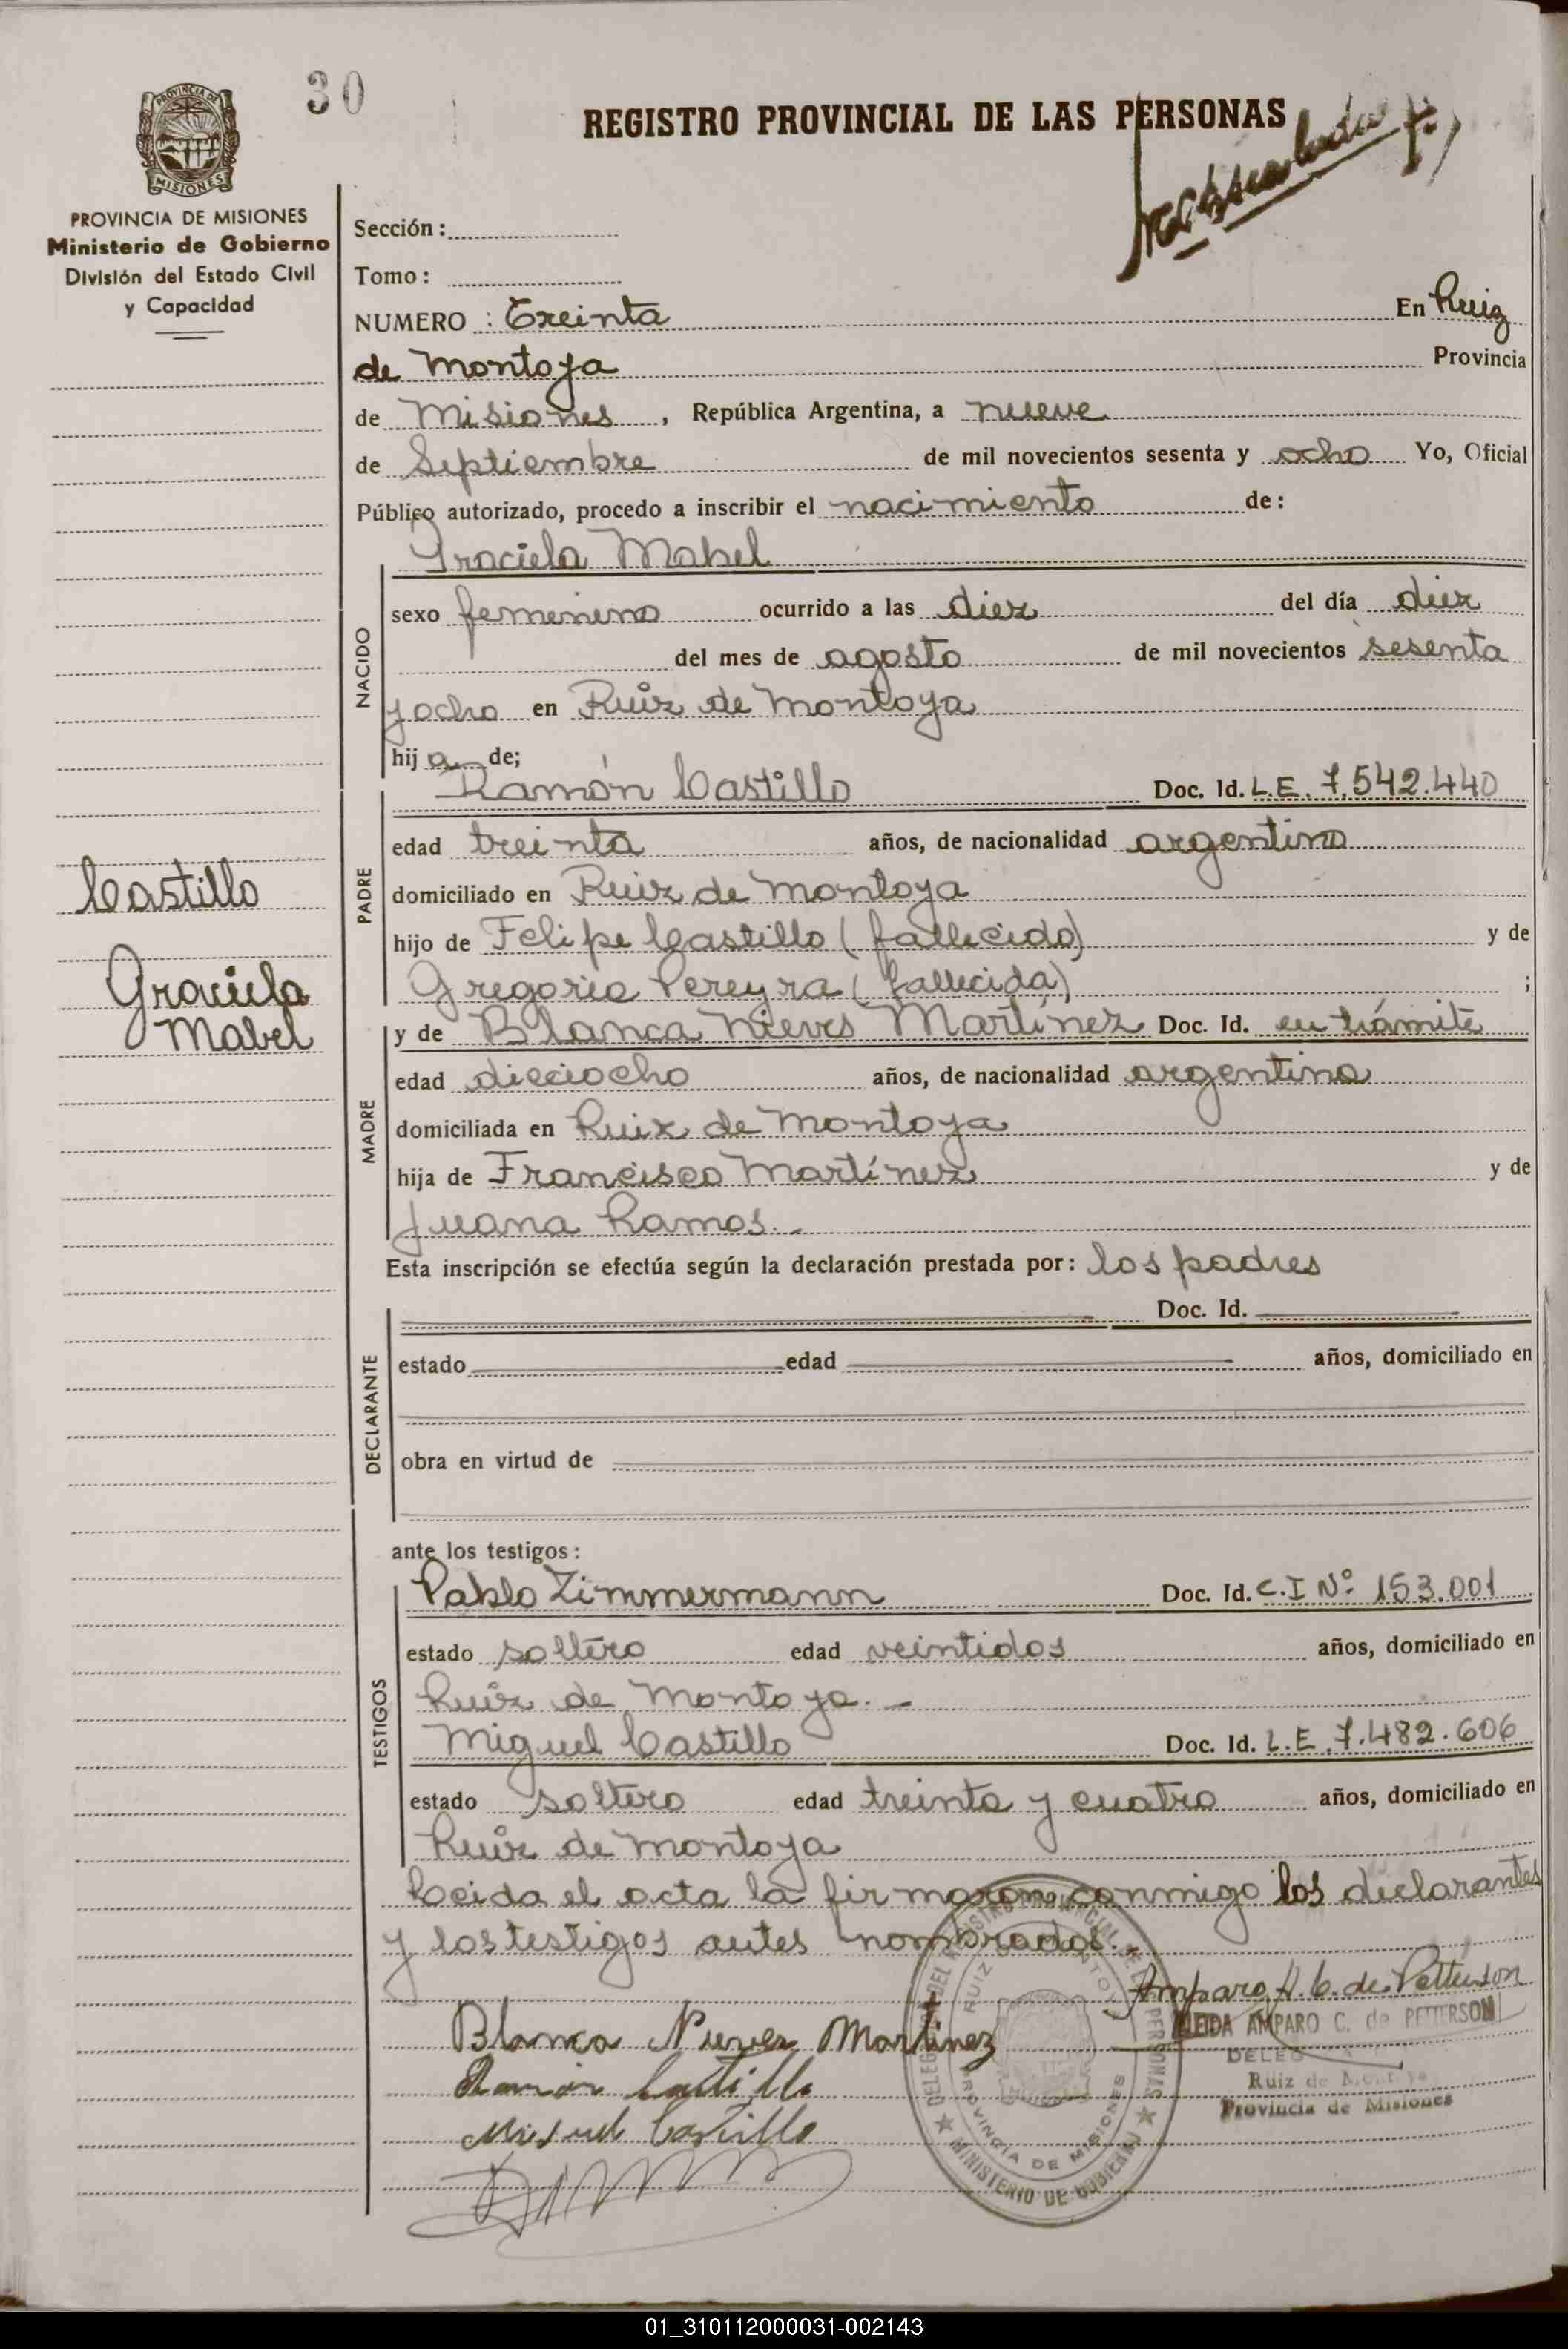 30
REGISTRO PROVINCIAL DE LAS PERSONAS
PROVINCIA DE MISIONES
Ministerio de Gobierno
División del Estado Civil
y Capacidad
Sección:
Tomo:
NUMERO : Treinta En Ruiz
de Montoya Provincia
de Misiones, República Argentina, a nueve
de Septiembre de mil novecientos sesenta y ocho Yo, Oficial
Público autorizado, procedo a inscribir el nacimiento de:
Graciela Mabel
NACIDO
sexo femenino ocurrido a las diez del día diez
del mes de agosto de mil novecientos sesenta
y ocho en Ruiz de Montoya
hij a de;
PADRE
Ramón Castillo Doc. Id. L.E. 7.542.440
edad treinta años, de nacionalidad argentino
domiciliado en Ruiz de Montoya
hijo de Felipe Castillo (fallecido) y de
Gregoria Pereyra (fallecida) ;
Castillo
Graciela
Mabel
MADRE
y de Blanca Nieves Martínez Doc. Id. en trámite
edad dieciocho años, de nacionalidad argentina
domiciliada en Ruiz de Montoya
hija de Francisco Martínez y de
Juana Ramos.-
Esta inscripción se efectúa según la declaración prestada por: los padres
DECLARANTE
Doc. Id.
estado edad años, domiciliado en
obra en virtud de
ante los testigos:
TESTIGOS
Pablo Zimmermann Doc. Id. C.I Nº 153.001
estado soltero edad veintidos años, domiciliado en
Ruiz de Montoya.-
Miguel Castillo Doc. Id. L.E. 7.482.606
estado soltero edad treinta y cuatro años, domiciliado en
Ruiz de Montoya
Leida el acta la firmaron conmigo los declarantes
y los testigos antes nombrados.-
Amparo A. C. de Petterson
Blanca Nieves Martinez
ELEIDA AMPARO C. de PETTERSON
DELEG
Ruiz de Montoya
Provincia de Misiones
Ramón Castillo
Miguel Castillo
PROVINCIA DE MISIONES
MINISTERIO DE GOBIERNO
01_310112000031-002143